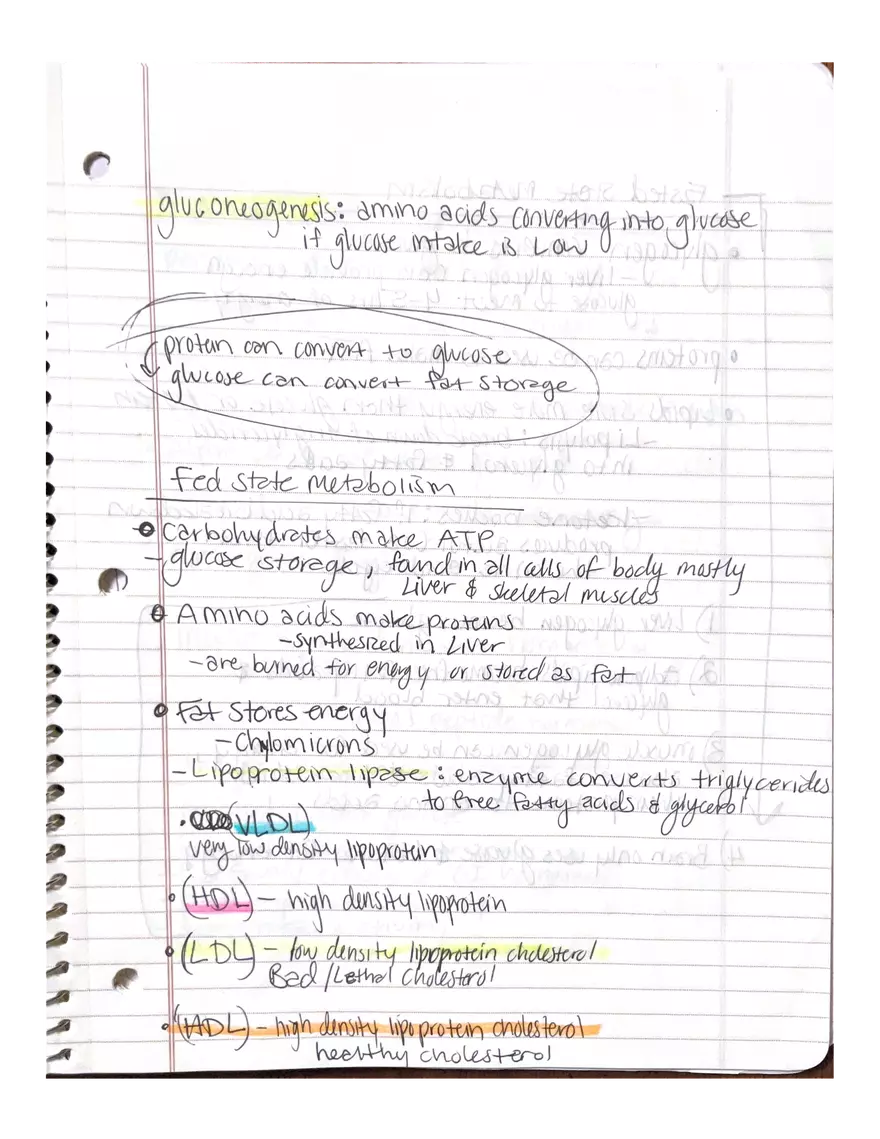 gluconeogenesis: amino acids converting into glucose
if glucose intake is LOW
protein can convert to glucose
glucose can convert fat storage
Fed State Metabolism
Carbohydrates make ATP
- glucose storage, found in all cells of body mostly
Liver & skeletal muscles
Amino acids make proteins
- synthesized in Liver
- are burned for energy or stored as fat
Fat stores energy
- Chylomicrons
- Lipoprotein lipase: enzyme converts triglycerides
to free fatty acids & glycerol
(VLDL)
very low density lipoprotein
(HDL) - high density lipoprotein
(LDL) - low density lipoprotein cholesterol
Bad/Lethal Cholesterol
(HDL) - high density lipoprotein cholesterol
healthy cholesterol